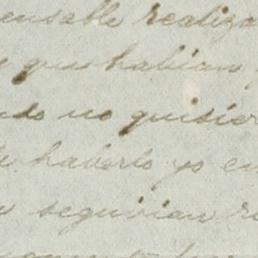 ensable realiza
que habian
ndo no quisier
haberlo yo en
seguirian r